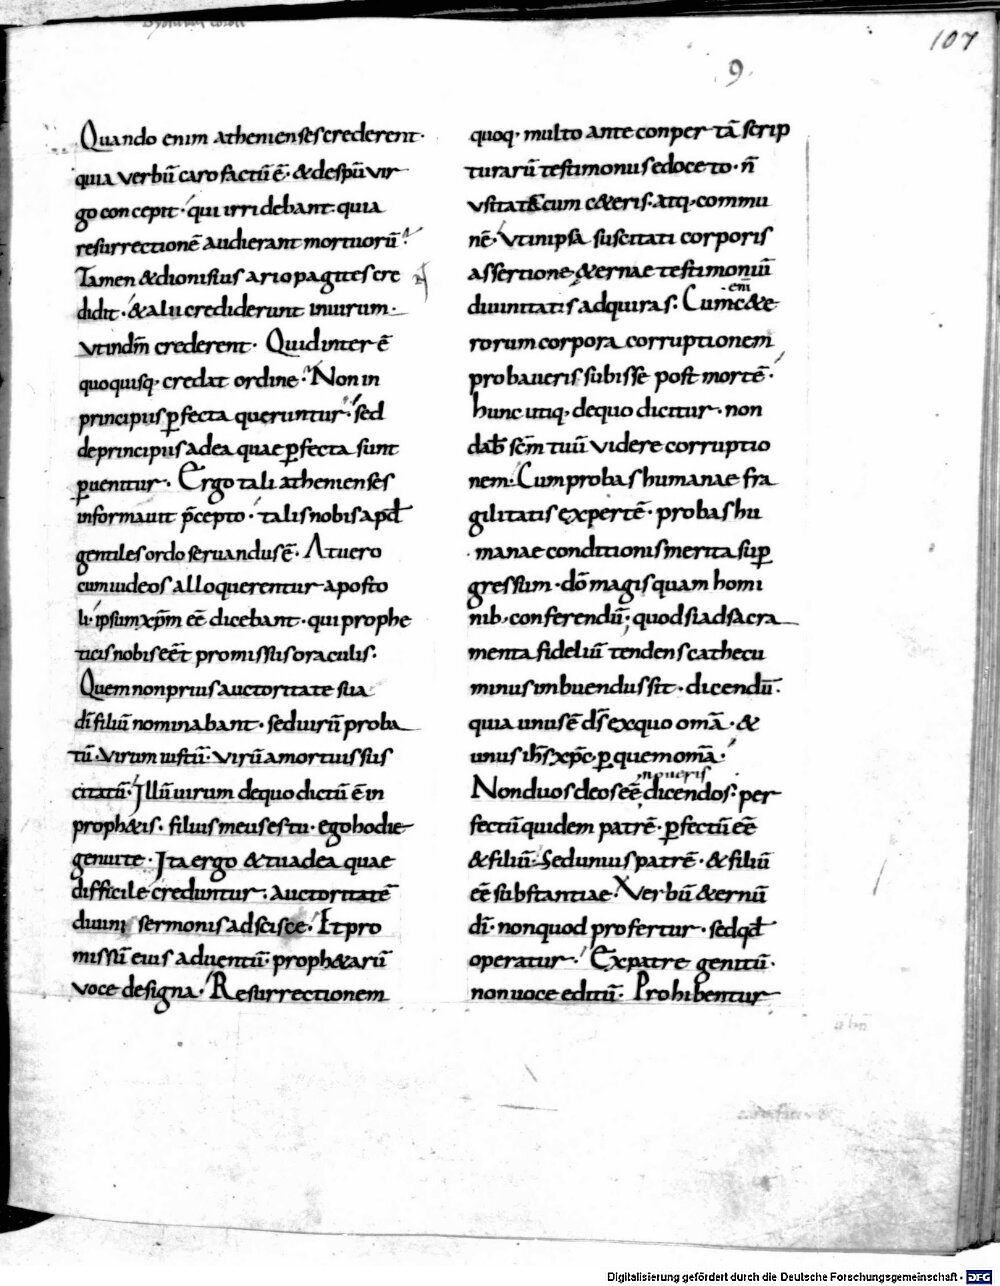 107
9
Quando enim athenienses crederent·
quia verbū caro factū ē· & de spū vir
go concepit· qui irridebant· quia
resurrectionē audierant mortuorū·
Tamen & dionisius ariopagites cre
didit· & alii crediderunt in virum·
Vt in dn̄m crederent· Quid inter ē
quo quisq· credat ordine· Non in
principiis ꝑfecta queruntur· sed
de principiis ad ea quae ꝑfecta sunt
ꝑuenitur· Ergo tali athenienses
informavit p̄cepto· talis nobis apd̄
gentiles ordo servandus ē· At uero
cum iudeos alloquerentur aposto
li· ipsum xp̄m eē dicebant· qui prophe
ticis nobis eēt promissus oraculis·
Quem non prius auctoritate sua
dī filiū nominabant· sed uirū proba
tū· Virum iustū· Virū a mortuis sus
citatū· Illū uirum de quo dictū ē in
proph&is· filius meus es tu· ego hodie
genui te· Ita ergo & tu ad ea quae
difficile creduntur· auctoritatē
diuini sermonis adscisce· Et pro
missū eius aduentū· proph&arū
voce designa· Resurrectionem
quoq· multo ante conpertā scrip
turarū testimoniis edoceto· n̄
vsitat& cum c&eris· atq· commu
nē· Vt in ipsa suscitati corporis
assertione &ernae testimoniū
diuinitatis adquiras· Cum eni c&e
rorum corpora corruptionem
probaueris subisse post mortē·
hunc utiq· de quo dicitur· non
dab̄ scm̄ tuū videre corruptio
nem· Cum probas humanae fra
gilitatis expertē· probas hu
manae conditionis merita suꝑ
gressum· dō magis quam homi
nib· conferendū· quod si ad sacra
menta fideliū tendens cathecu
minus inbuendus sit· dicendū·
quia unus ē ds̄ ex quo om̄a· &
unus ih̄s xp̄c· ꝑ quem om̄a·
noueris
Non duos deos eē dicendos· per
fectū quidem patrē· ꝑfectū eē
& filiū· Sed unius patrē· & filiū
eē substantiae· Verbū &ernū
dī· non quod profertur· sed qd̄
operatur· Ex patre genitū·
non uoce editū· Prohibentur
Digitalisierung gefördert durch die Deutsche Forschungsgemeinschaft - DFG